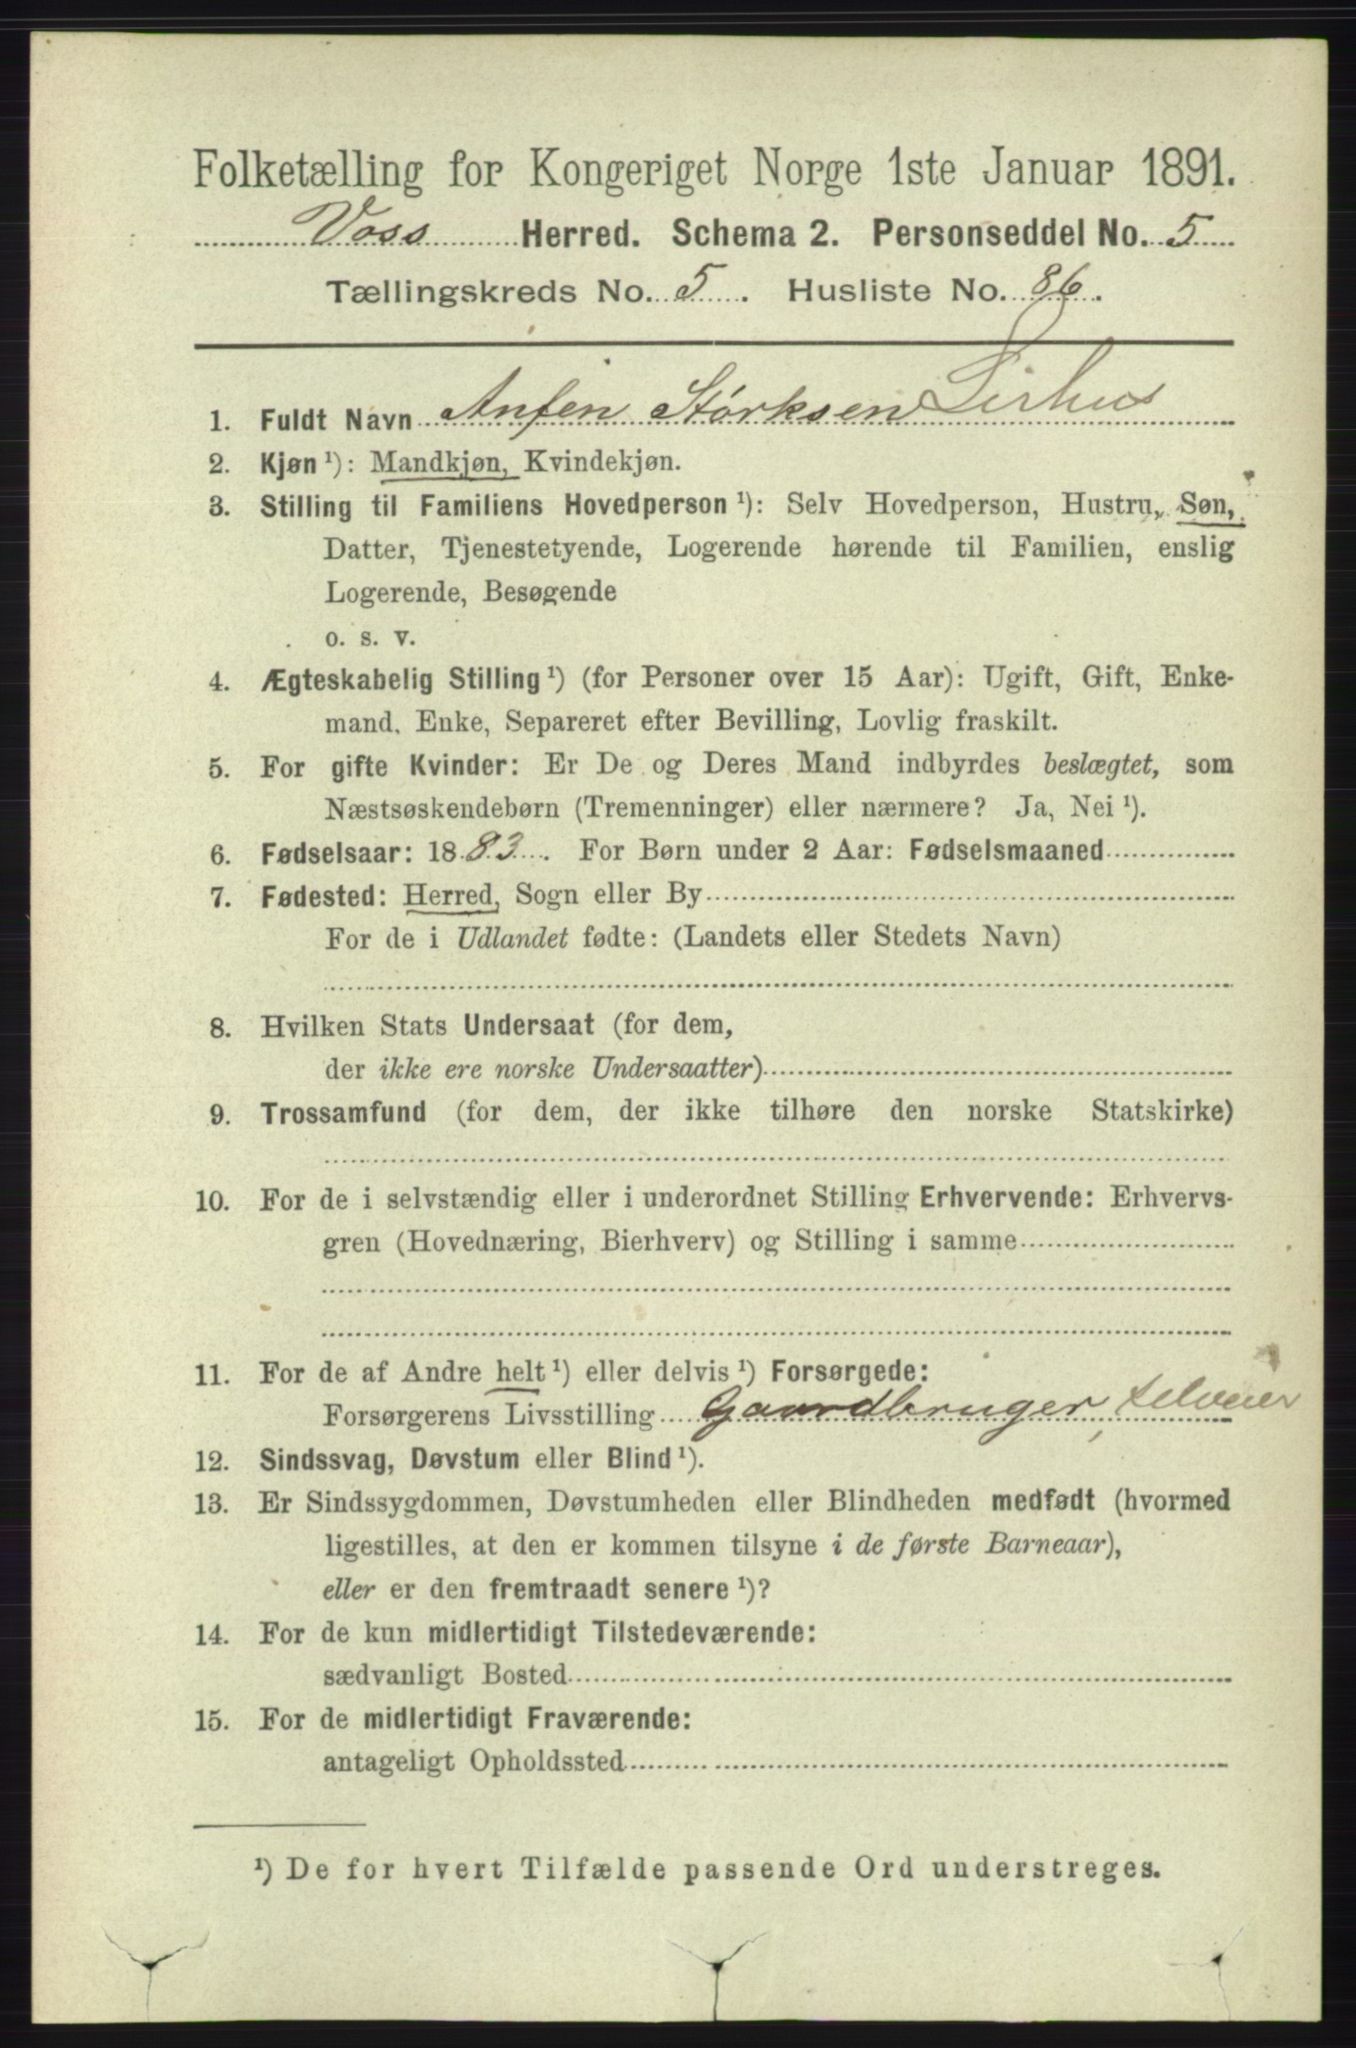 Folketælling for Kongeriget Norge 1ste Januar 1891.
Voss Herred. Schema 2. Personseddel No. 5
Tællingskreds No. 5. Husliste No. 86.
1. Fuldt Navn Anfen Størksen Lirhus
2. Kjøn ¹): Mandkjøn, Kvindekjøn.
3. Stilling til Familiens Hovedperson ¹): Selv Hovedperson, Hustru, Søn,
Datter, Tjenestetyende, Logerende hørende til Familien, enslig
Logerende, Besøgende
o. s. v.
4. Ægteskabelig Stilling ¹) (for Personer over 15 Aar): Ugift, Gift, Enke-
mand, Enke, Separeret efter Bevilling, Lovlig fraskilt.
5. For gifte Kvinder: Er De og Deres Mand indbyrdes beslægtet, som
Næstsøskendebørn (Tremenninger) eller nærmere? Ja, Nei ¹).
6. Fødselsaar: 1883. For Børn under 2 Aar: Fødselsmaaned
7. Fødested: Herred, Sogn eller By
For de i Udlandet fødte: (Landets eller Stedets Navn)
8. Hvilken Stats Undersaat (for dem,
der ikke ere norske Undersaatter)
9. Trossamfund (for dem, der ikke tilhøre den norske Statskirke)
10. For de i selvstændig eller i underordnet Stilling Erhvervende: Erhvervs-
gren (Hovednæring, Bierhverv) og Stilling i samme
11. For de af Andre helt ¹) eller delvis ¹) Forsørgede:
Forsørgerens Livsstilling Gaardbruger, selveier
12. Sindssvag, Døvstum eller Blind ¹).
13. Er Sindssygdommen, Døvstumheden eller Blindheden medfødt (hvormed
ligestilles, at den er kommen tilsyne i de første Barneaar),
eller er den fremtraadt senere ¹)?
14. For de kun midlertidigt Tilstedeværende:
sædvanligt Bosted
15. For de midlertidigt Fraværende:
antageligt Opholdssted
¹) De for hvert Tilfælde passende Ord understreges.